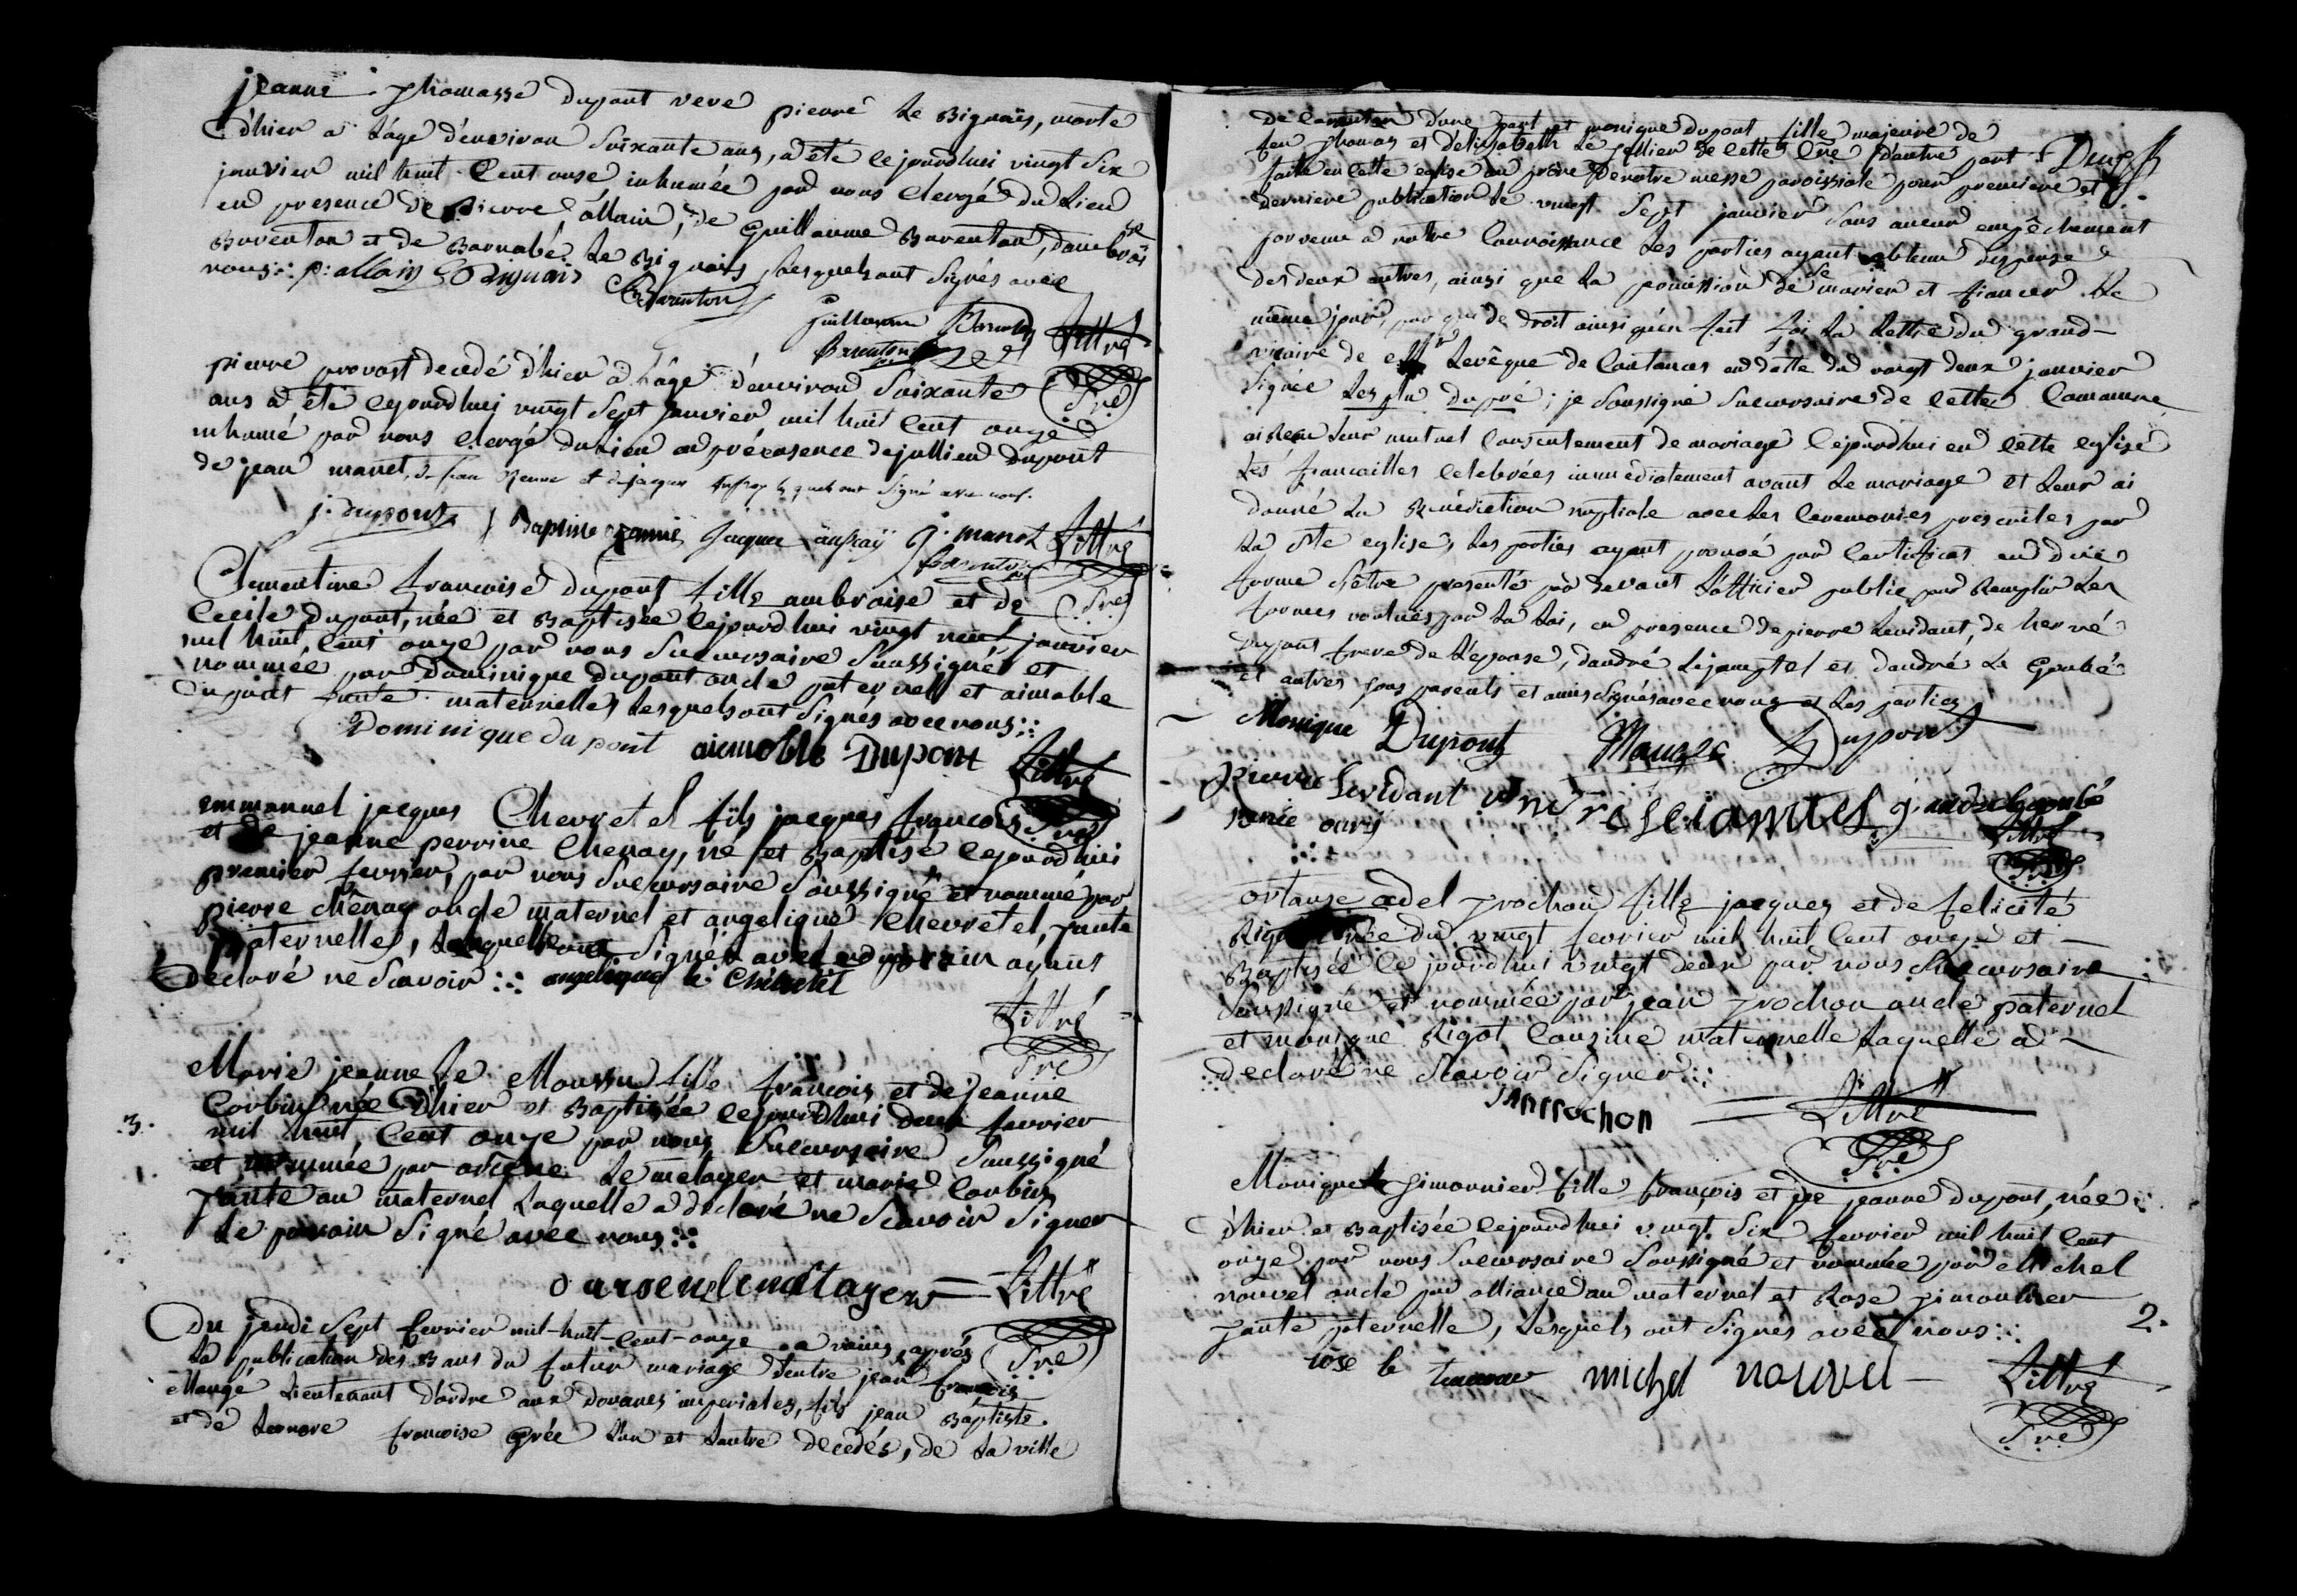 jeanne thomasse dupont veve pierre le Bignais, morte
d'hier a l'age d'environ soixante ans, a été cejourdhui vingt six
janvier mil huit cent onse inhumée par nous clergé du Lieu
en presence de pierre allain, de guillaume Barenton, d'ambroise
Barenton et de Barnabé le Bignais, lesquels ont signés avec
nous : p: allain Barenton
guillaume
Barenton Littré
pierre provost decedé d'hier a l'age d'environ soixante ptre
ans a été cejourdhui vingt sept janvier mil huit cent onze
inhumé par nous clergé du Lieu en présence de jullien dupont
de jean manet, de jean et de jacques lesquels ont signé avec nous.
j. dupont Baptiste jacque aufray j. manet Littré
ptre
Clementine francoise dupont fille ambroise et de
Cecile dupont, née et Baptisée cejourdhui vingt neuf janvier
mil huit cent onze par nous succursaire soussigné et
nommée par dominique dupont oncle paternel et aimable
dupont tante maternelle, lesquels ont signés avec nous :
Dominique du pont aimable Dupont Littré
ptre
emmanuel jacques Chevretel fils jacques francois
et de jeanne perrine Chenay, né et Baptisé cejourdhui
premier fevrier, par nous succursaire soussigné et nommé par
pierre chenay oncle maternel et angelique Chevretel, tante
paternelle, laquelle signés avec parain ayant
declaré ne scavoir : angelique le
Littré
ptre
Marie jeanne Le Moussu fille francois et de jeanne
Corbin née d'hier et Baptisée cejourdhui deux fevrier
.3. mil huit cent onze par nous succursaire soussigné
et nommée par le metayer et marie Corbin
tante au maternel laquelle a declaré ne scavoir signer
le parain signé avec nous :
Littré
ptre
Du jeudi sept fevrier mil-huit-cent-onze apres
la publication des Bans du futur mariage d'entre jean francois
Mangé Lieutenant d'ordre aux Douanes imperiales, fils jean Baptiste
et de Leonore francoise l'un et l'autre decedés, de la ville
de d'une part et monique dupont fille majeure de
feu thomas et d'elisabeth le de cette d'autre part
faite en cette eglise au prône de notre messe paroissiale pour premiere et
derniere publication le vingt sept janvier sans aucun empêchement
parvenu a notre connoissance les parties ayant obtenu dispense
des deux autres, ainsi que la permission de se marier et fiancer le
même jour, par qui de droit ainsi qu'en fait foi la lettre du grand-
vicaire de Mr Levêque de Coutances en datte du vingt deux janvier
signée dupré ; je soussigné succursaire de cette Commune
ai Recu leur mutuel consentement de mariage cejourdhui en cette eglise
les fiancailles celebrées immediatement avant le mariage et leur ai
donné la Bénédiction nuptiale avec les ceremonies prescrites par
la Ste eglise, les parties ayant prouvé par certificat en due
forme s'être presentés par devant l'officier public pour Remplir les
formes voulues par la loi, en presence de pierre Levidant, de hervé
dupont frere de l'epouse, d'andré lejamptel et d'andré Le Goubé
et autres tous parents et amis signés avec nous et les parties
Monique Dupont Dupont
pierre Levidant andre lejamtel andre legoubé
Littré
ptre
ortanse adel trochon fille jacques et de felicité
Rigot née du vingt fevrier mil huit cent onze et
Baptisée cejourdhui vingt deux par nous succursaire
soussigné et nommée par jean trochon oncle paternel
et monique Rigot cousine maternelle laquelle a
declaré ne scavoir signer :
Littré
ptre
Monique fille françois et de jeanne dupont, née
d'hier et Baptisée cejourdhui vingt six fevrier mil huit cent
onze par nous succursaire soussigné et nommée par Michel
nouvel oncle par alliance au maternel et Rose
tante paternelle, lesquels ont signés avec nous : 2.
rose le michel nouvel Littré
ptre